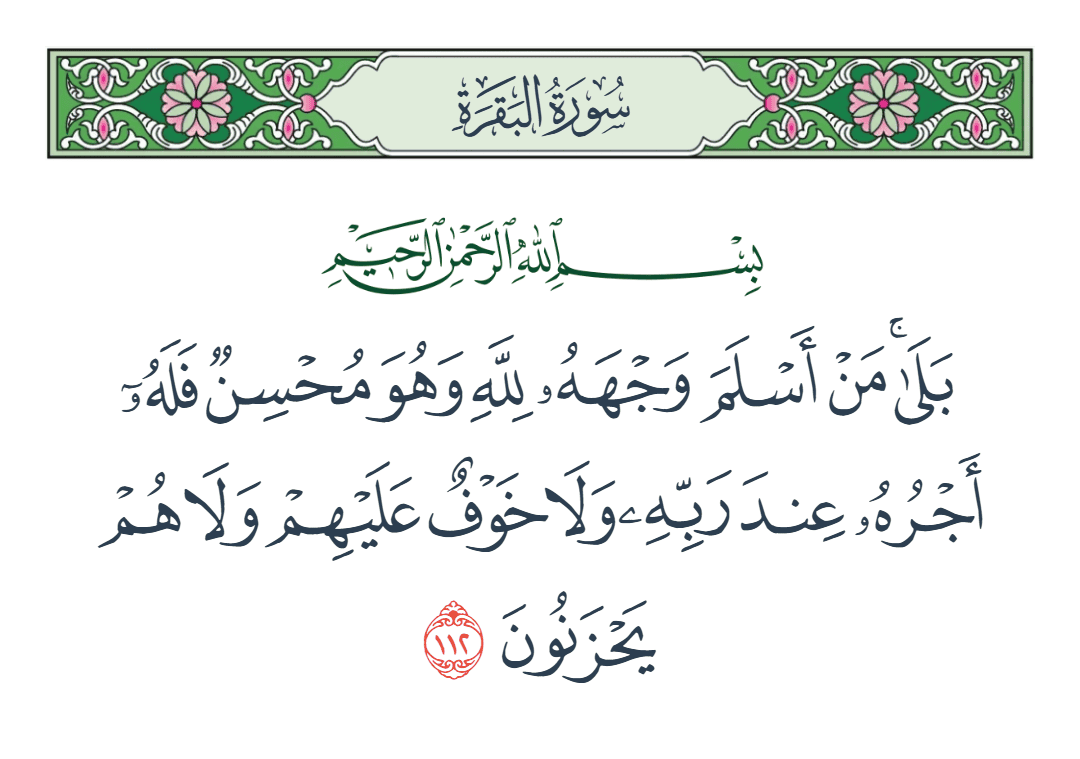 سُورَةُ البَقَرَةِ
بِسْمِ ٱللَّهِ ٱلرَّحْمَٰنِ ٱلرَّحِيمِ
بَلَىٰۚ مَنْ أَسْلَمَ وَجْهَهُۥ لِلَّهِ وَهُوَ مُحْسِنٌ فَلَهُۥٓ
أَجْرُهُۥ عِندَ رَبِّهِۦ وَلَا خَوْفٌ عَلَيْهِمْ وَلَا هُمْ
يَحْزَنُونَ ١١٢